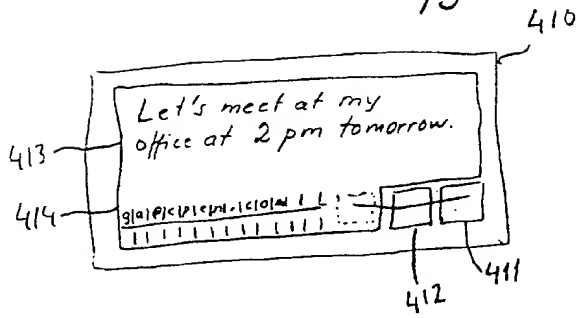 410
Let's meet at my
office at 2 pm tomorrow.
413
414
412
411